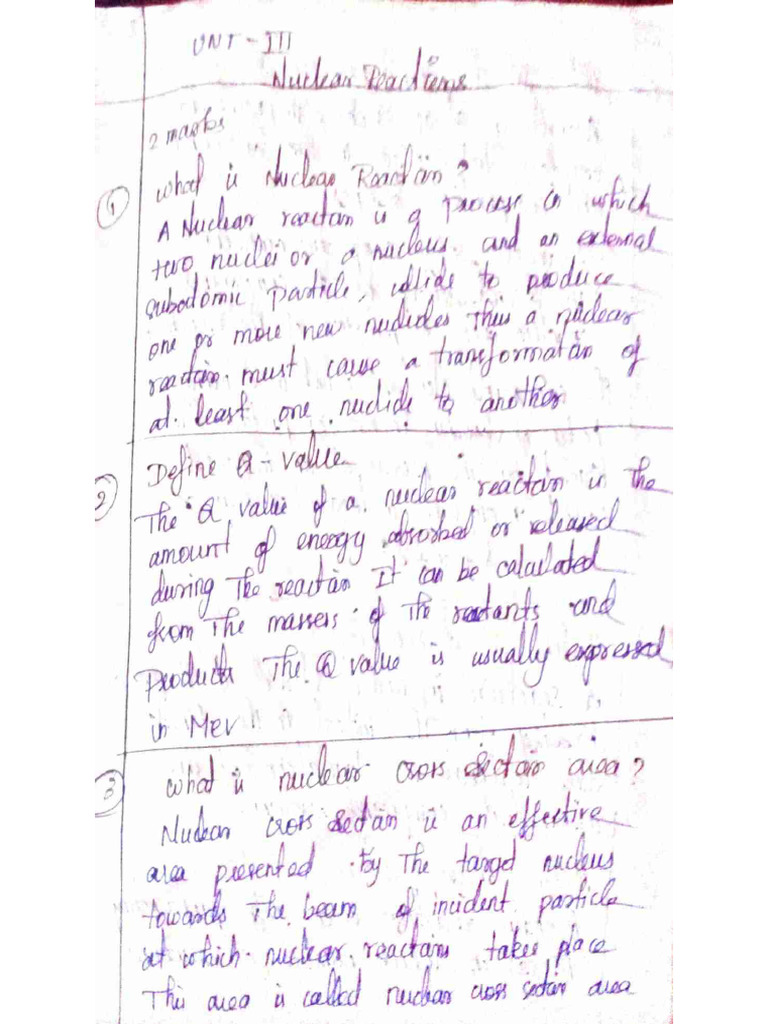 UNT - III
Nuclear Reactions
2 marks
① What is Nuclear Reaction?
A Nuclear reaction is a process in which
two nuclei or a nucleus and an external
subatomic Particle, collide to produce
one or more new nuclides Thus a nuclear
reaction must cause a transformation of
at least one nuclide to another
② Define Q - value
The Q value of a nuclear reaction is the
amount of energy absorbed or released
during The reaction It can be calculated
from The masses of The reactants and
Products The Q value is usually expressed
in Mev
③ What is nuclear cross section area?
Nuclear cross section is an effective
area presented by The target nucleus
towards The beam of incident particle
at which nuclear reactions takes place
This area is called nuclear cross section area